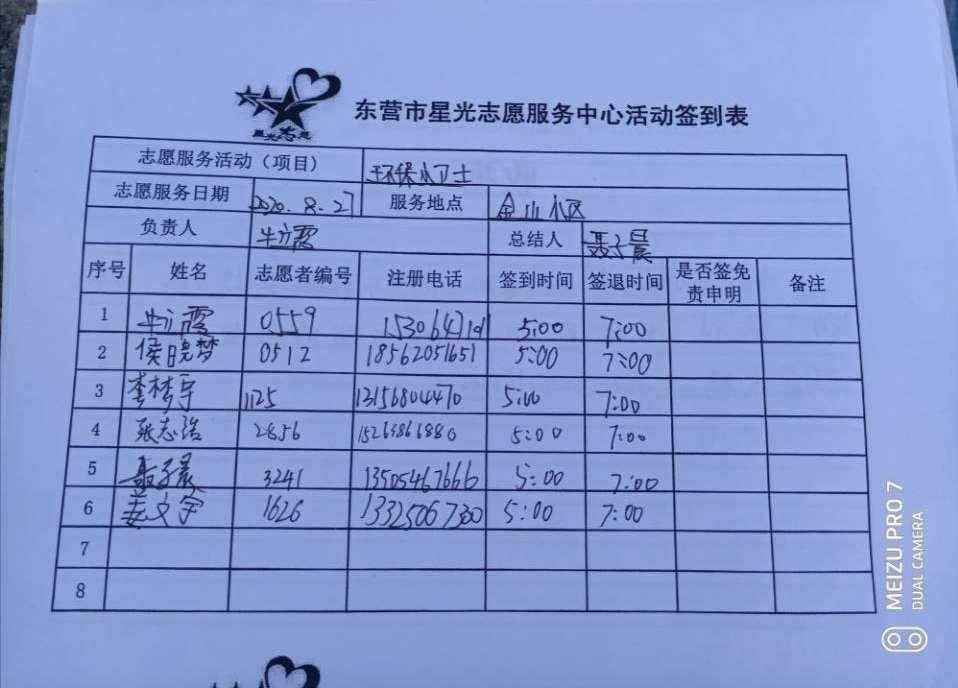 星光志愿
东营市星光志愿服务中心活动签到表
志愿服务活动（项目） 环保小卫士
志愿服务日期 2020.8.27 服务地点 金山小区
负责人 牛立霞 总结人 聂子晨
序号 姓名 志愿者编号 注册电话 签到时间 签退时间 是否签免责申明 备注
1 牛立霞 0559 5:00 7:00
2 侯晓梦 0512 18562051651 5:00 7:00
3 李梦宇 1125 13156804470 5:00 7:00
4 张志浩 2856 15263866880 5:00 7:00
5 聂子晨 3241 13505467666 5:00 7:00
6 姜文宇 1626 13325067300 5:00 7:00
7
8
MEIZU PRO 7
DUAL CAMERA